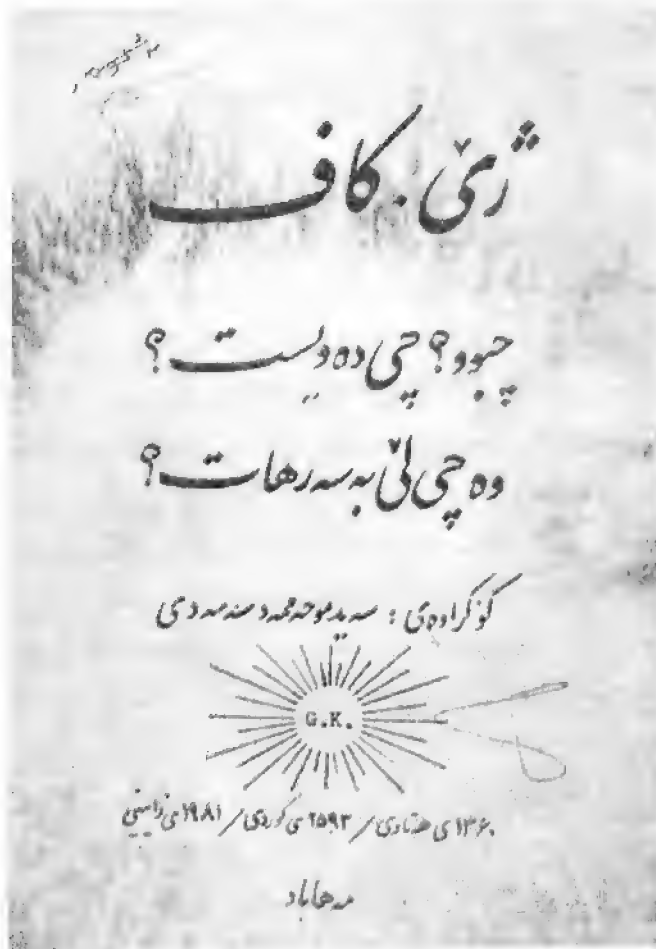 ژێ. کاف
چبوو؟ چی دەویست؟
وە چی لێ بەسەرهات؟
کۆکراوەی : سەیدموحەممەد سەمەدی
G.K.
۱۳۶۰ی هەتاوی / ۲۵۹۳ی کوردی / ۱۹۸۱ی زایینی
مەهاباد